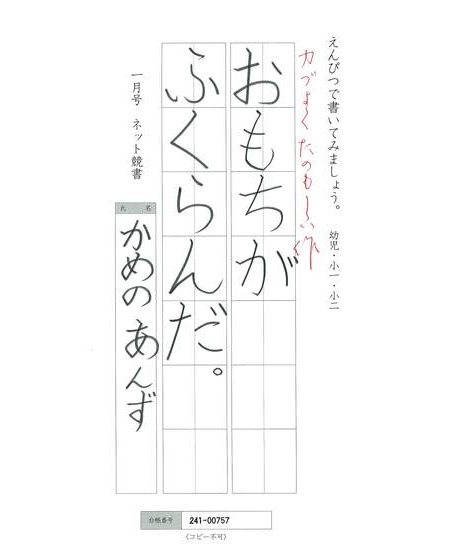 えんぴつで書いてみましょう。　幼児・小一・小二
力づよく たのもしい作
おもちが
ふくらんだ。
一月号　ネット競書
氏名
かめの あんず
台帳番号 241-00757
(コピー不可)